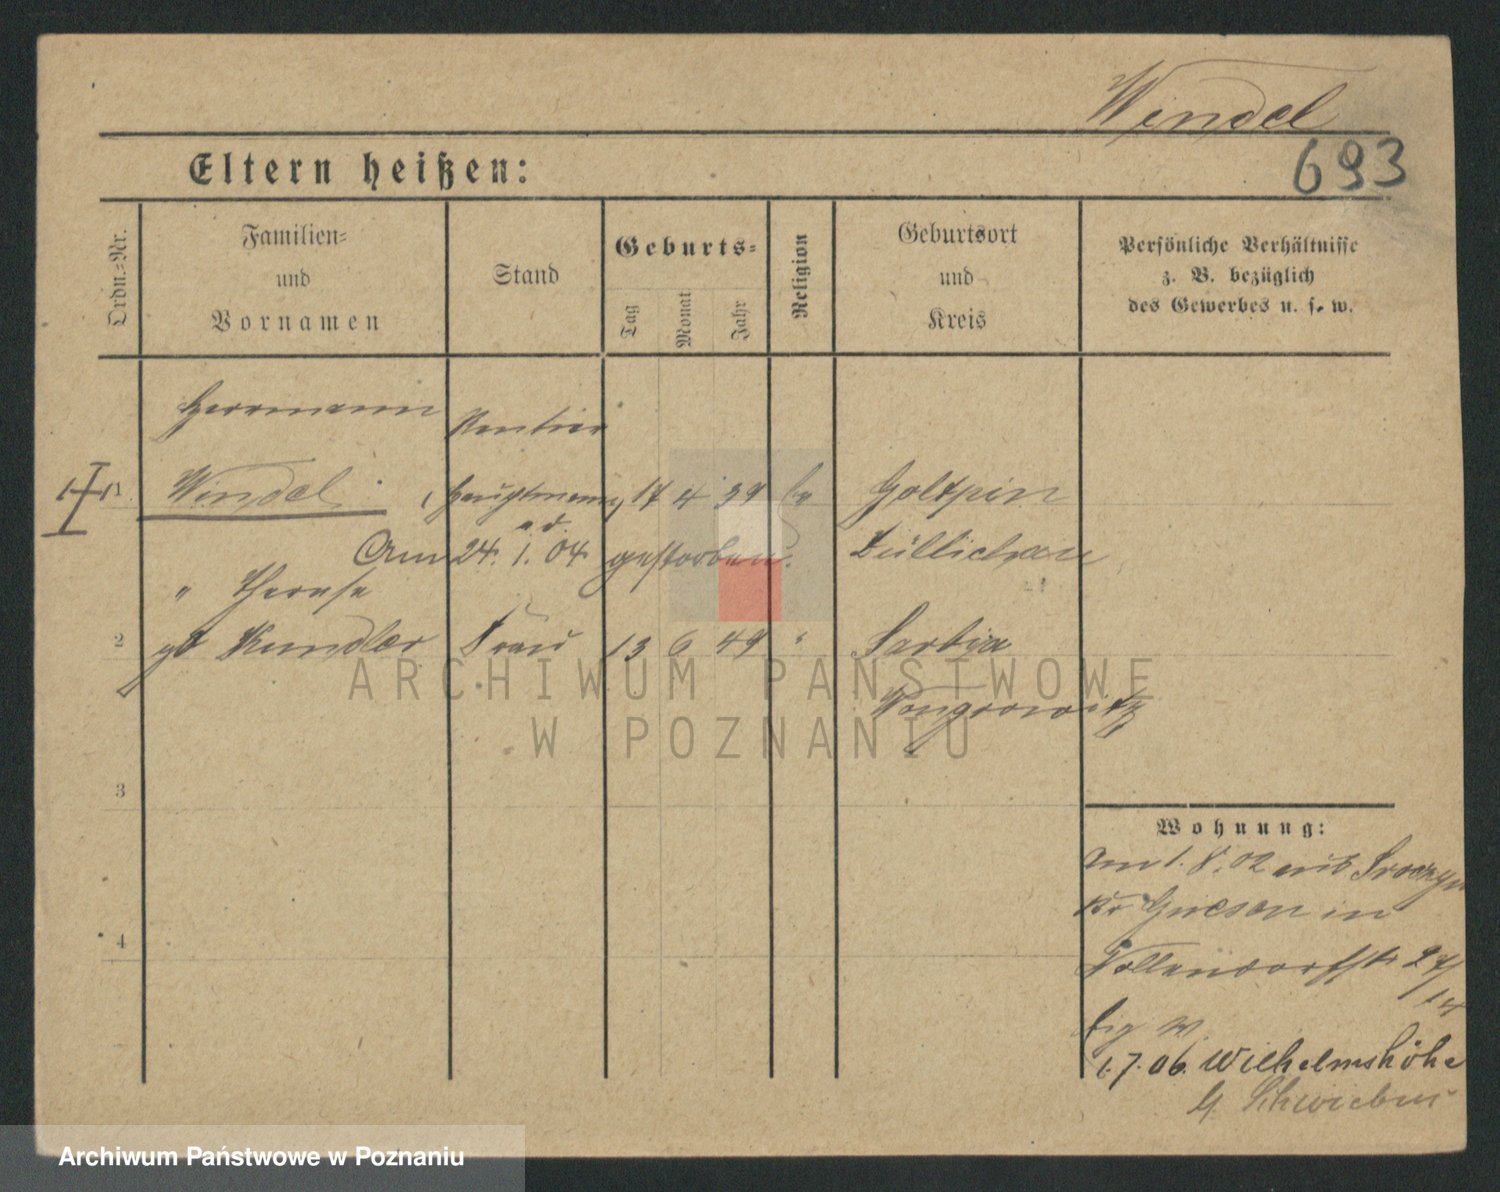 Windel
693
Eltern heißen:
Ordn.=Nr.
Familien=
und
Vornamen
Stand
Geburts=
Tag
Monat
Jahr
Religion
Geburtsort
und
Kreis
Persönliche Verhältnisse
z. B. bezüglich
des Gewerbes u. s. w.
Herrmann
Rentier
1 Windel (Hauptmann 17 4 39 Goltzen
a. d.
Am 24. 1. 04 gestorben. Züllichau
" Therese
2 gb Kundler Frau 13 6 49 " Sarbia
Wongrowitz
3
4
Wohnung:
am 1. 8. 02 aus
Kr Gnesen in
27/
14
1.7.06. Wilhelmshöhe
b. Schwiebus
ARCHIWUM PAŃSTWOWE
W POZNANIU
Archiwum Państwowe w Poznaniu